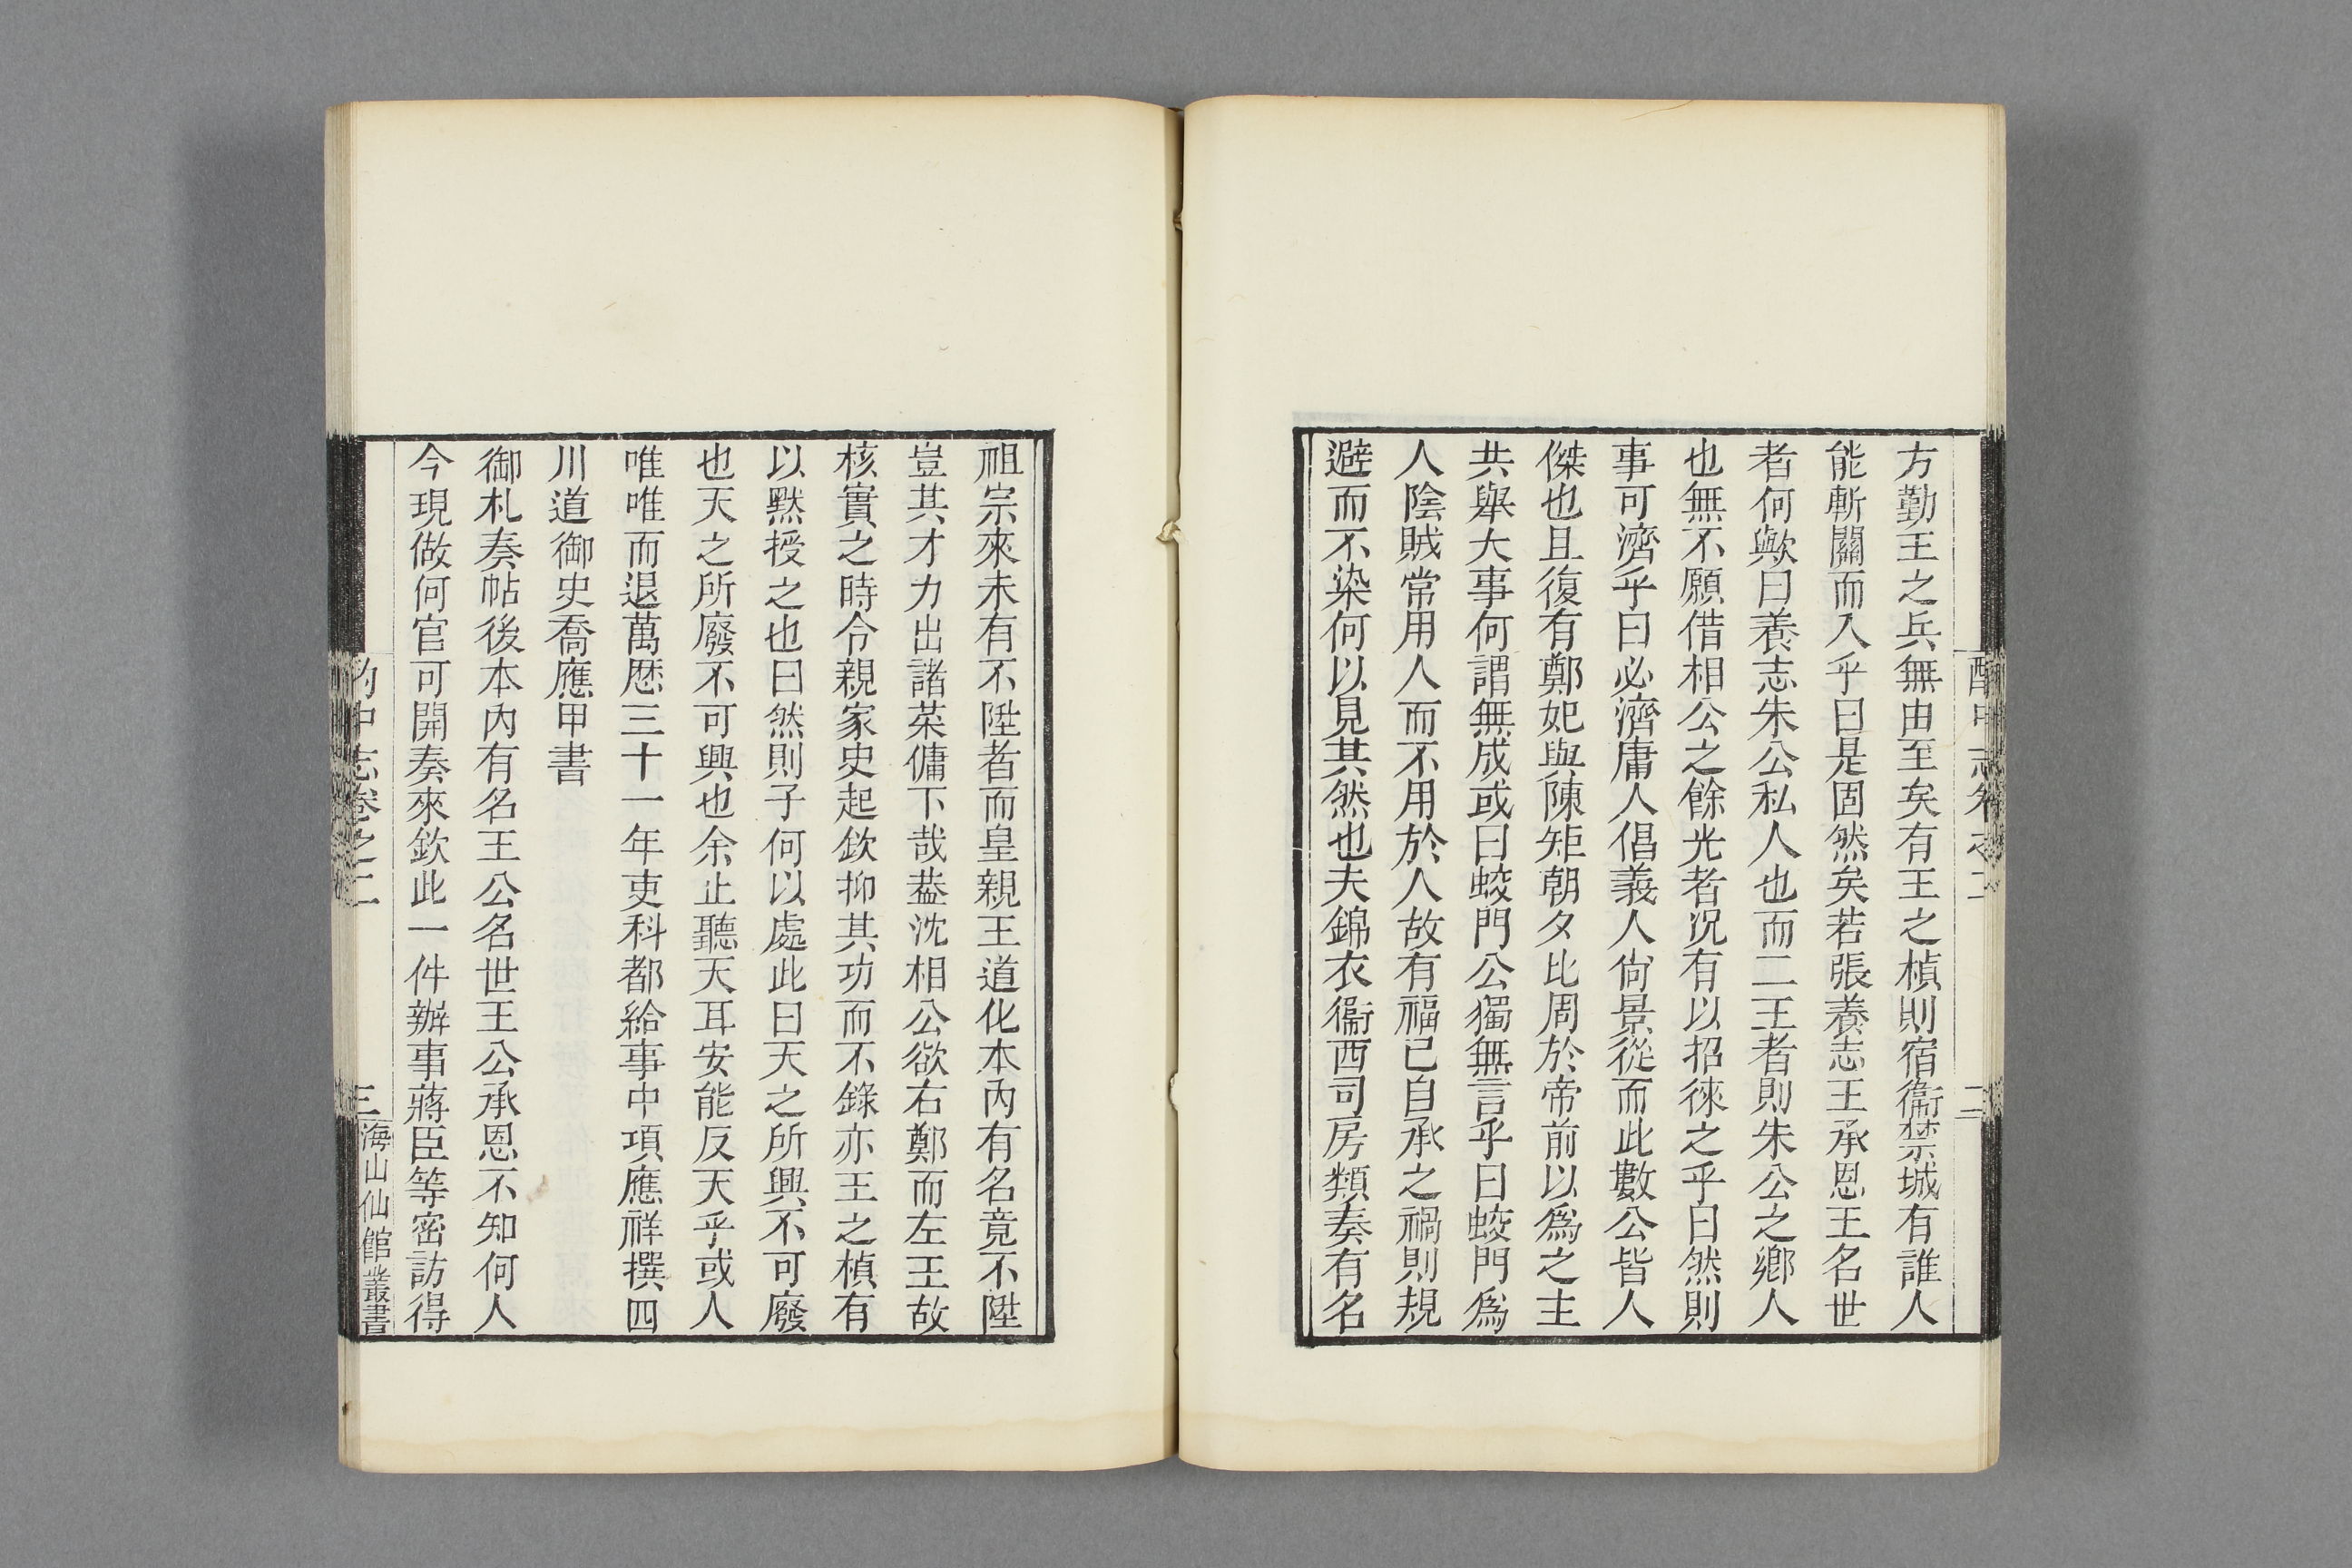 方勤王之兵無由至矣有王之楨則宿衞禁城有誰人
能斬關而入乎曰是固然矣若張養志王承恩王名世
者何歟曰養志朱公私人也而二王者則朱公之鄉人
也無不願借相公之餘光者況有以招徠之乎曰然則
事可濟乎曰必濟庸人倡義人尙景從而此數公皆人
傑也且復有鄭妃與陳矩朝夕比周於帝前以爲之主
共舉大事何謂無成或曰蛟門公獨無言乎曰蛟門爲
人陰賊常用人而不用於人故有福已自承之禍則規
避而不染何以見其然也夫錦衣衞西司房類奏有名
祖宗來未有不陞者而皇親王道化本內有名竟不陞
豈其才力出諸菜傭下哉葢沈相公欲右鄭而左王故
核實之時令親家史起欽抑其功而不錄亦王之楨有
以默授之也曰然則子何以處此曰天之所興不可廢
也天之所廢不可興也余止聽天耳安能反天乎或人
唯唯而退萬厯三十一年吏科都給事中項應祥撰四
川道御史喬應甲書
御札奏帖後本內有名王公名世王公承恩不知何人
今現做何官可開奏來欽此一件辦事蔣臣等密訪得
酌中志卷之二
三
海山仙館叢書